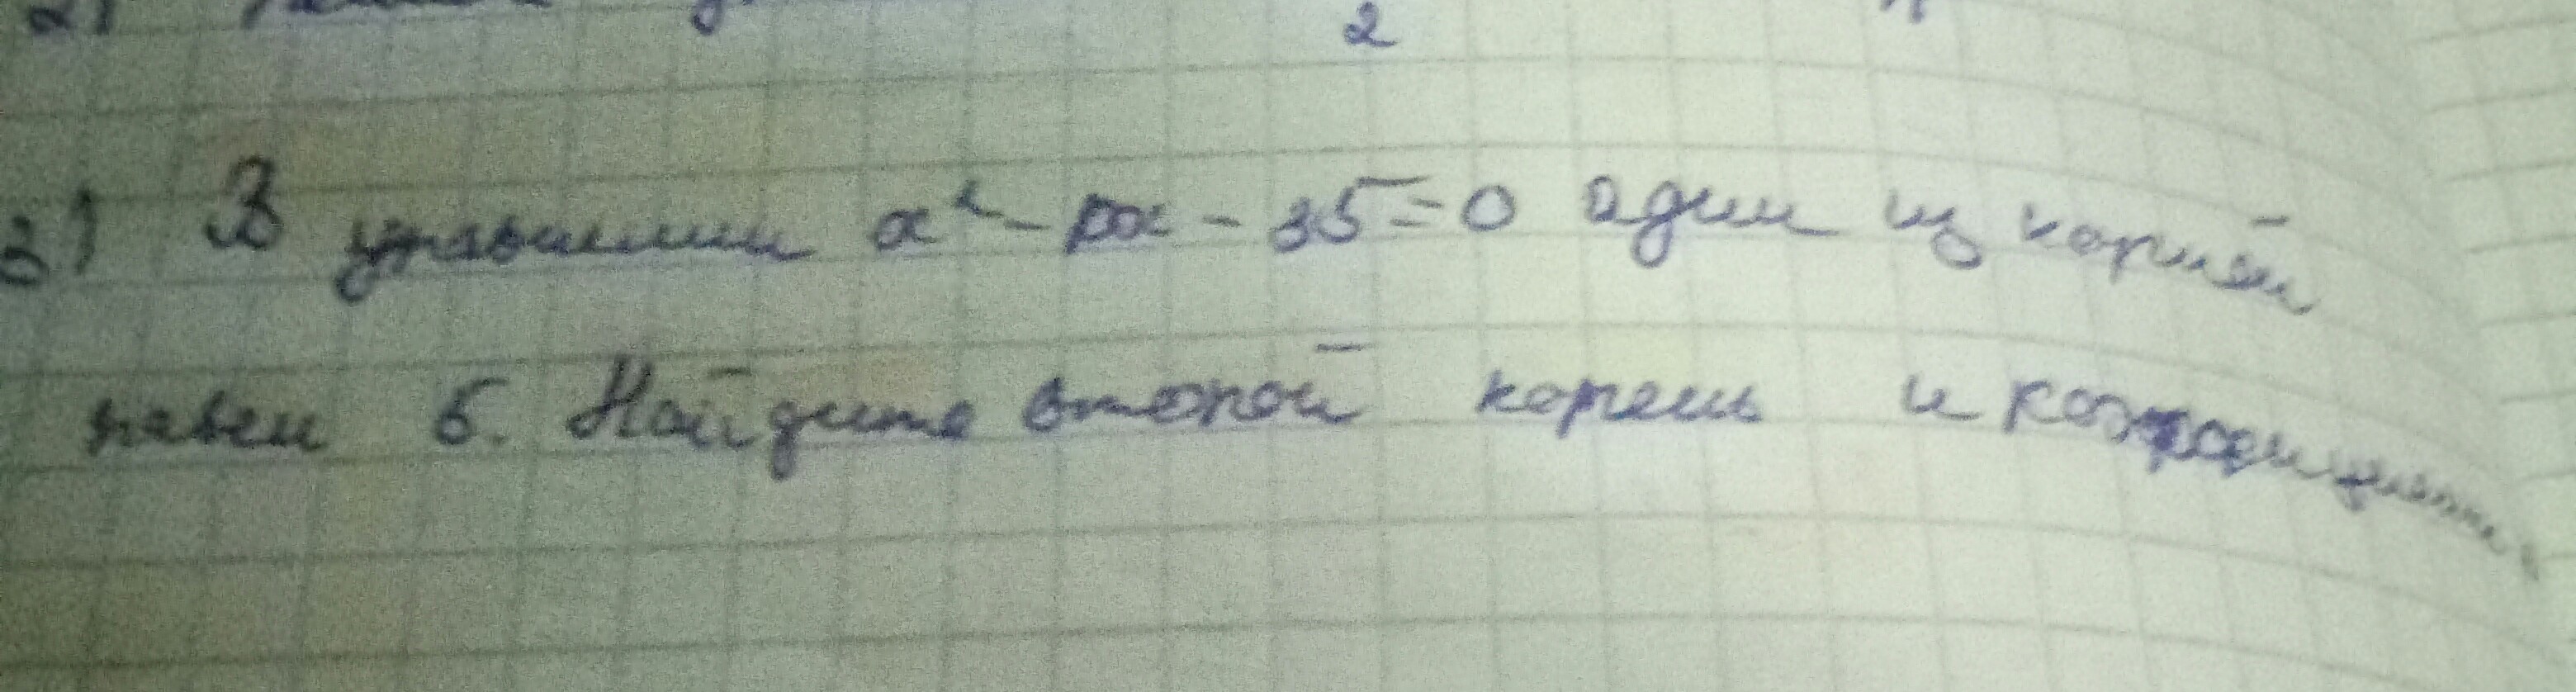 2)
2
3) В уравнении x² - px - 35 = 0 один из корней
равен 5. Найдите второй корень и коэффициент